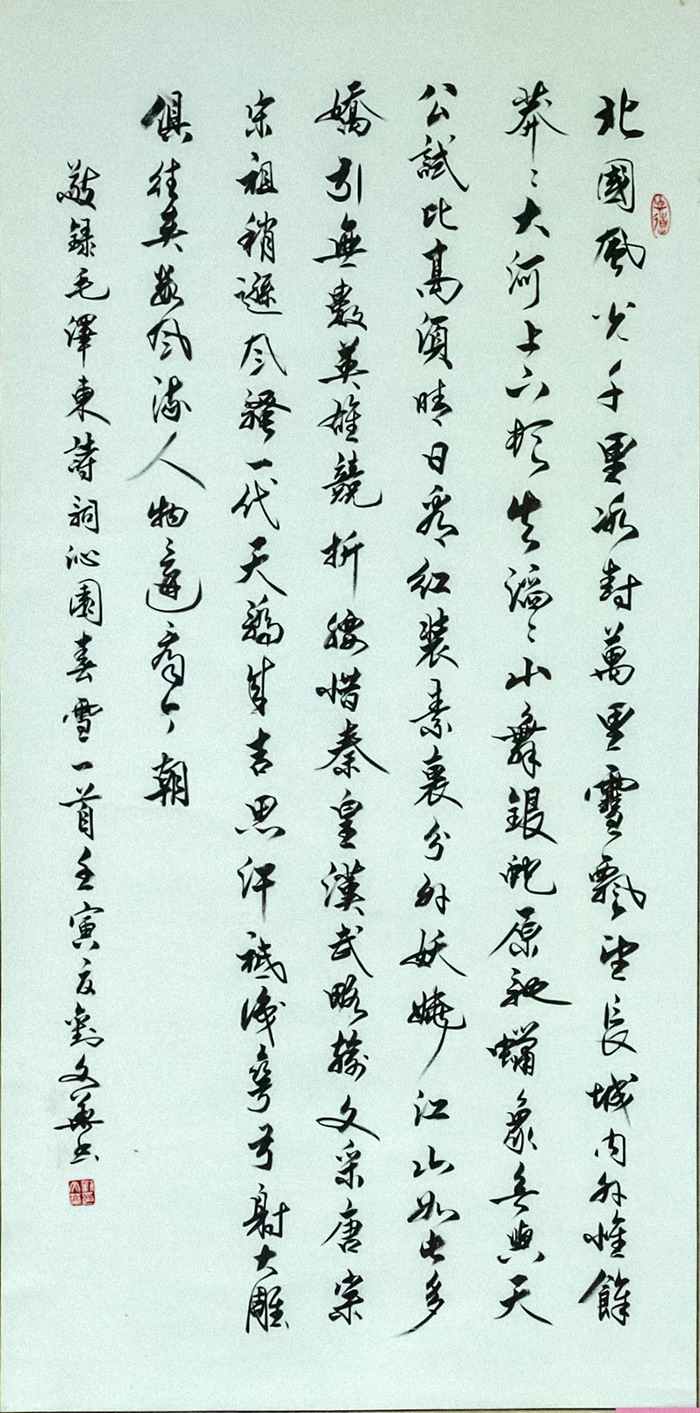 北國風光千里冰封萬里雪飄望長城內外惟餘
莽々大河上下頓失滔々山舞銀蛇原馳蠟象欲與天
公試比高須晴日看紅裝素裹分外妖嬈江山如此多
嬌引無數英雄競折腰惜秦皇漢武略輸文采唐宗
宋祖稍遜風騷一代天驕成吉思汗祇識彎弓射大雕
俱往矣數風流人物還看今朝
敬錄毛澤東詩詞沁園春雪一首壬寅夏劉文華書